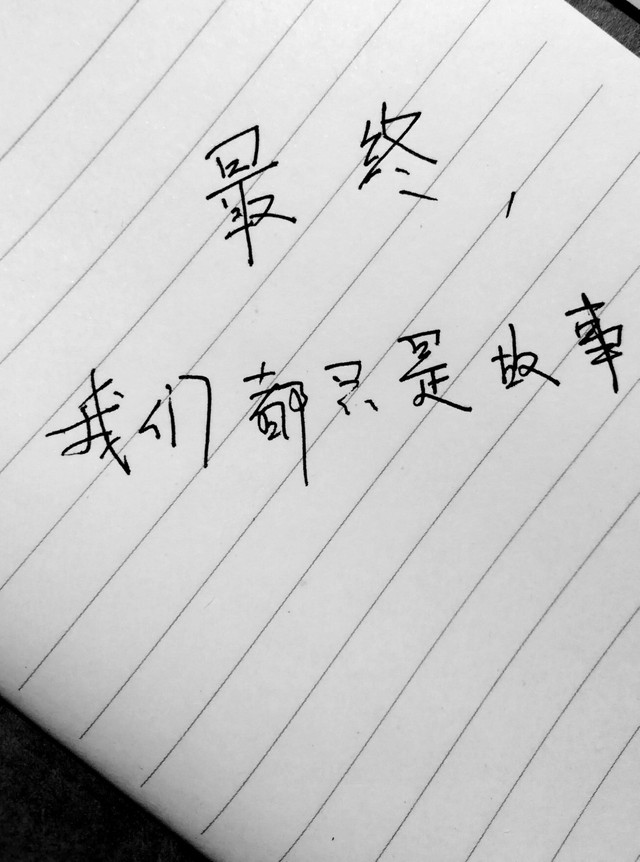 最终，
我们都只是故事